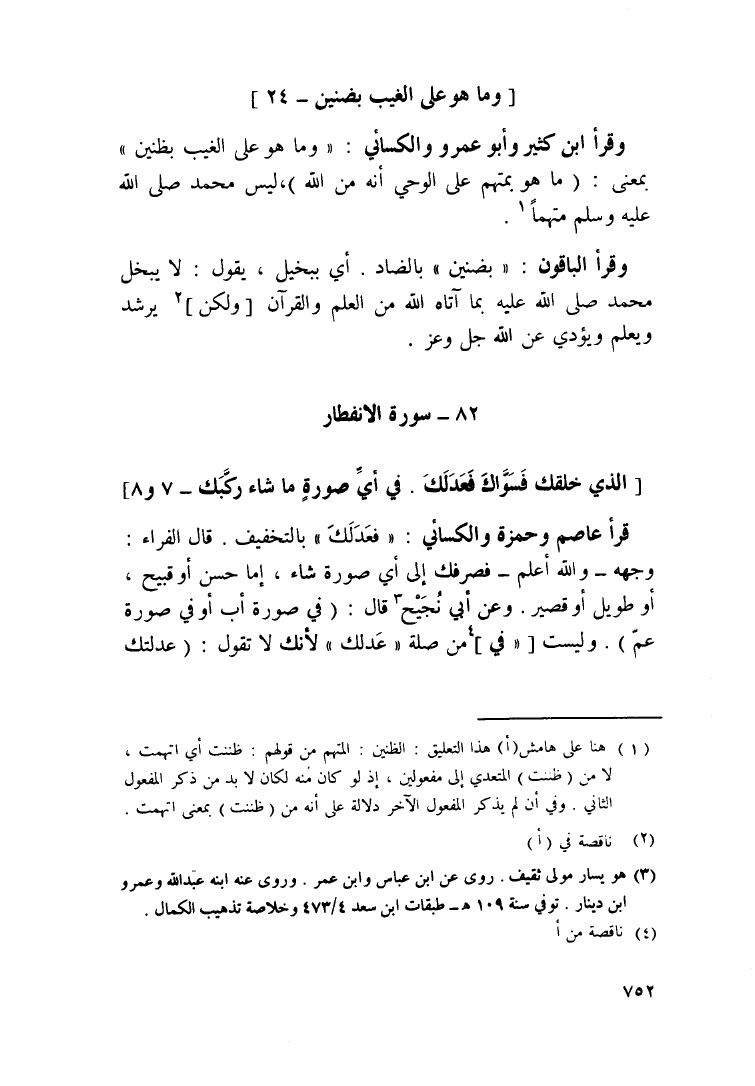 [ وما هو على الغيب بضنين – ٢٤ ]
وقرأ ابن كثير وأبو عمرو والكسائي : « وما هو على الغيب بظنين »
بمعنى : ( ما هو بمتهم على الوحي أنه من الله )،ليس محمد صلى الله
عليه وسلم متهماً١ .
وقرأ الباقون : « بضنين » بالضاد . أي ببخيل ، يقول : لا يبخل
محمد صلى الله عليه بما آتاه الله من العلم والقرآن [ ولكن ]٢ يرشد
ويعلم ويؤدي عن الله جل وعز .
٨٢ – سورة الانفطار
[ الذي خلقك فَسَوَّاكَ فَعَدَلَكَ . في أيِّ صورةٍ ما شاء ركَّبَك – ٧ و٨]
قرأ عاصم وحمزة والكسائي : « فعَدَلَكَ » بالتخفيف . قال الفراء :
وجهه – والله أعلم – فصرفك إلى أي صورة شاء ، إما حسن أو قبيح ،
أو طويل أو قصير . وعن أبي نُجَيْح٣ قال : ( في صورة أب أو في صورة
عمّ ) . وليست [ « في ]٤من صلة « عَدلك » لأنك لا تقول : ( عدلتك
(١) هنا على هامش(أ) هذا التعليق : الظنين : المتهم من قولهم : ظننت أي اتهمت ،
لا من ( ظننت ) المتعدي إلى مفعولين ، إذ لو كان منه لكان لا بد من ذكر المفعول
الثاني . وفي أن لم يذكر المفعول الآخر دلالة على أنه من ( ظننت ) بمعنى اتهمت .
(٢) ناقصة في ( أ )
(٣) هو يسار مولى ثقيف . روى عن ابن عباس وابن عمر . وروى عنه ابنه عبدالله وعمرو
ابن دينار . توفي سنة ١٠٩ هـ – طبقات ابن سعد ٤٧٣/٤ وخلاصة تذهيب الكمال .
(٤) ناقصة من أ
٧٥٢